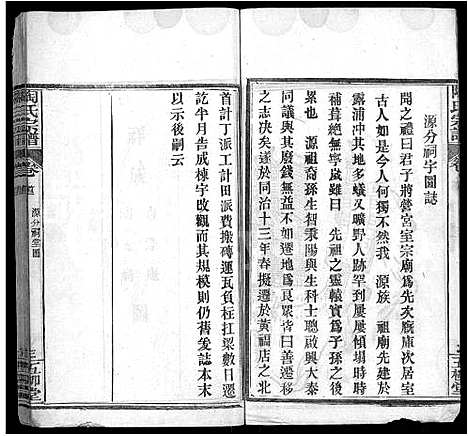 源分祠宇圖誌
聞之禮曰君子將營宮室宗廟爲先次廐庫次居室
古人如是今人何獨不然我 源族 祖廟先建於
露浦冲其地多蟻又曠野人跡不到時屢屢傾塌時時
補葺絕無寧歲雖曰 先祖之靈轅實爲子孫之後
累也 源祖裔孫生招與生秉陽與生科士聰啟興大秦
同議與其廢錢無益不如遷地爲良眾皆曰善遷移
之志决矣遂於同治十三年春擬遷於黃福店之北
首計丁派工計田派費搬磚運瓦負標扛梁數日遷
訖半月告成棟宇改觀而其規模則仍舊爰誌本末
以示後嗣云
陶氏宗譜
卷首
源分祠堂圖
五柳堂